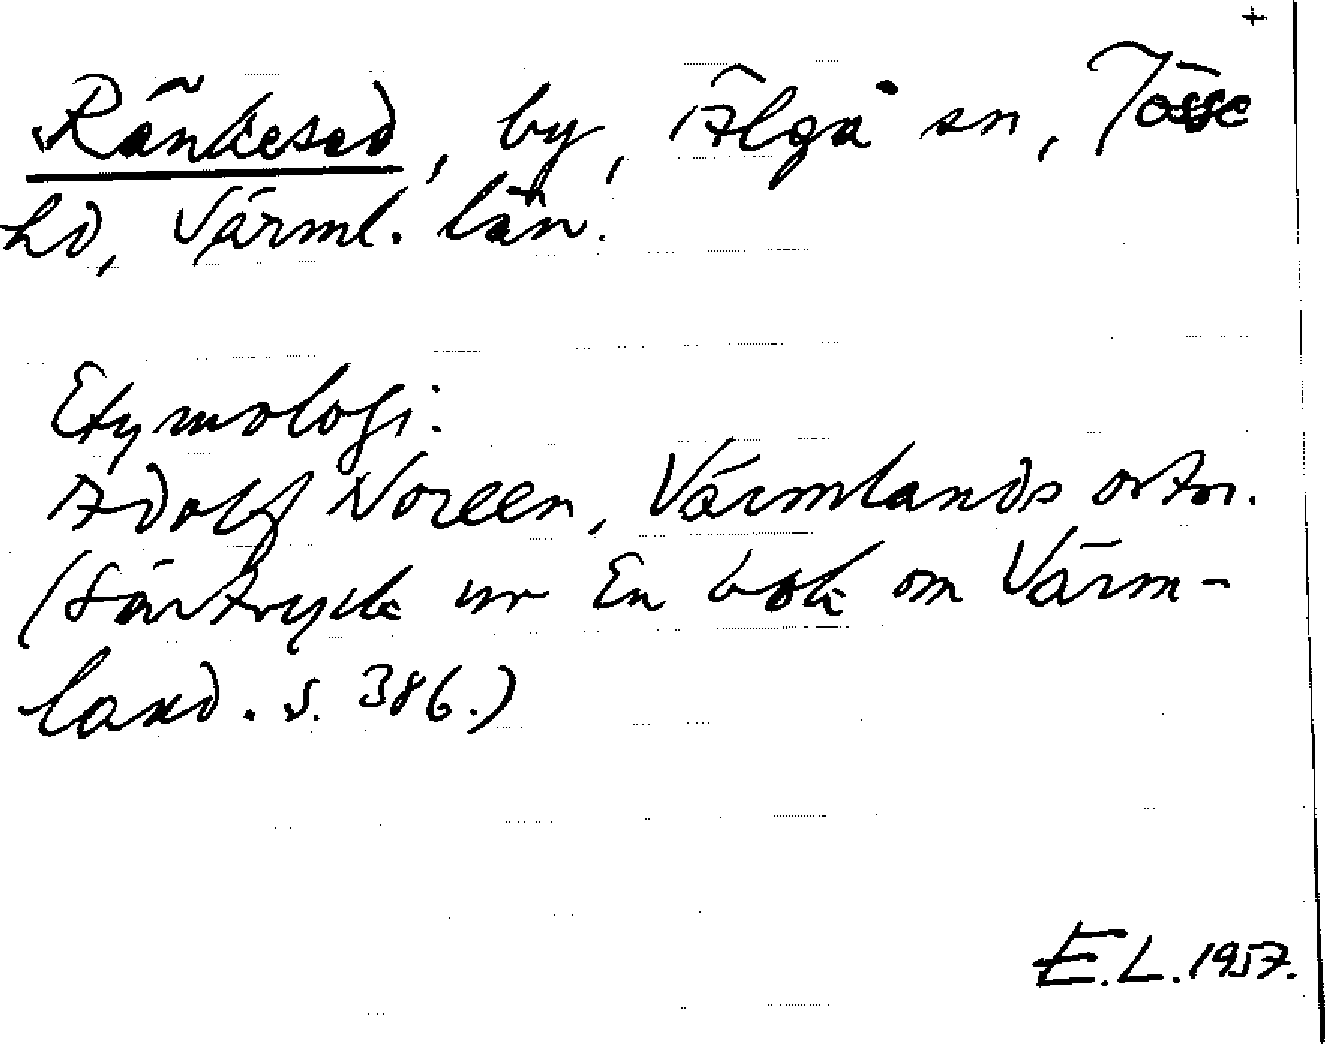 +
Ränkesed, by, Älgå sn, Jösse
hd, Värml. län.
Etymologi:
Adolf Noreen, Värmlands ortn.
(Särtryck ur En bok om Värm-
land. s. 386.)
E.L. 1957.